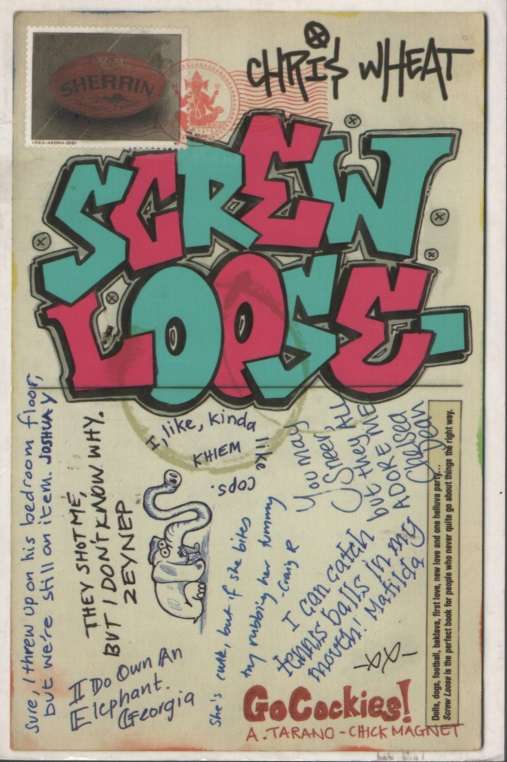 SHERRIN
CHRIS WHEAT
SCREW
LOOSE
Sure, I threw up on his bedroom floor,
but we're still an item. JOSHUA Y
THEY SHOT ME,
BUT I DON'T KNOW WHY.
ZEYNEP
I, like, kinda
like
cops.
KHIEM
You may
sneer,
but they ALL
ADORE ME
Chelsea
Dean
She's rude, but if she bites
try rubbing her tummy
Craig R
I can catch
tennis balls in my
mouth! Matilda
I Do Own An
Elephant.
Georgia
Go Cockies!
A. TARANO - CHICK MAGNET
Dolls, dogs, football, baklava, first love, new love and one helluva party...
Screw Loose is the perfect book for people who never quite go about things the right way.